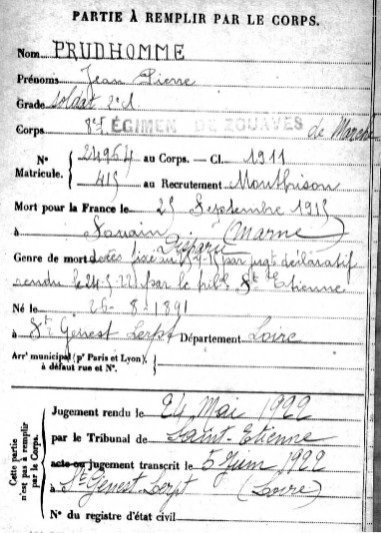 PARTIE À REMPLIR PAR LE CORPS.
Nom PRUDHOMME
Prénoms Jean Pierre
Grade soldat 2e cl
Corps 8e RÉGIMENT DE ZOUAVES de Marche
N° 24964 au Corps. — Cl. 1911
Matricule. 415 au Recrutement Montbrison
Mort pour la France le 25 Septembre 1915
à Souain (Marne)
Disparu
Genre de mort décès fixé au par jugt déclaratif
rendu le 24-5-22 par le tribl St Etienne
Né le 26-8-1891
à St Genest Lerpt Département Loire
Arrt municipal (pr Paris et Lyon),
à défaut rue et N°.
Cette partie
n'est pas à remplir
par le Corps.
Jugement rendu le 24 Mai 1922
par le Tribunal de Saint-Etienne
acte ou jugement transcrit le 5 Juin 1922
à St Genest Lerpt (Loire)
N° du registre d'état civil